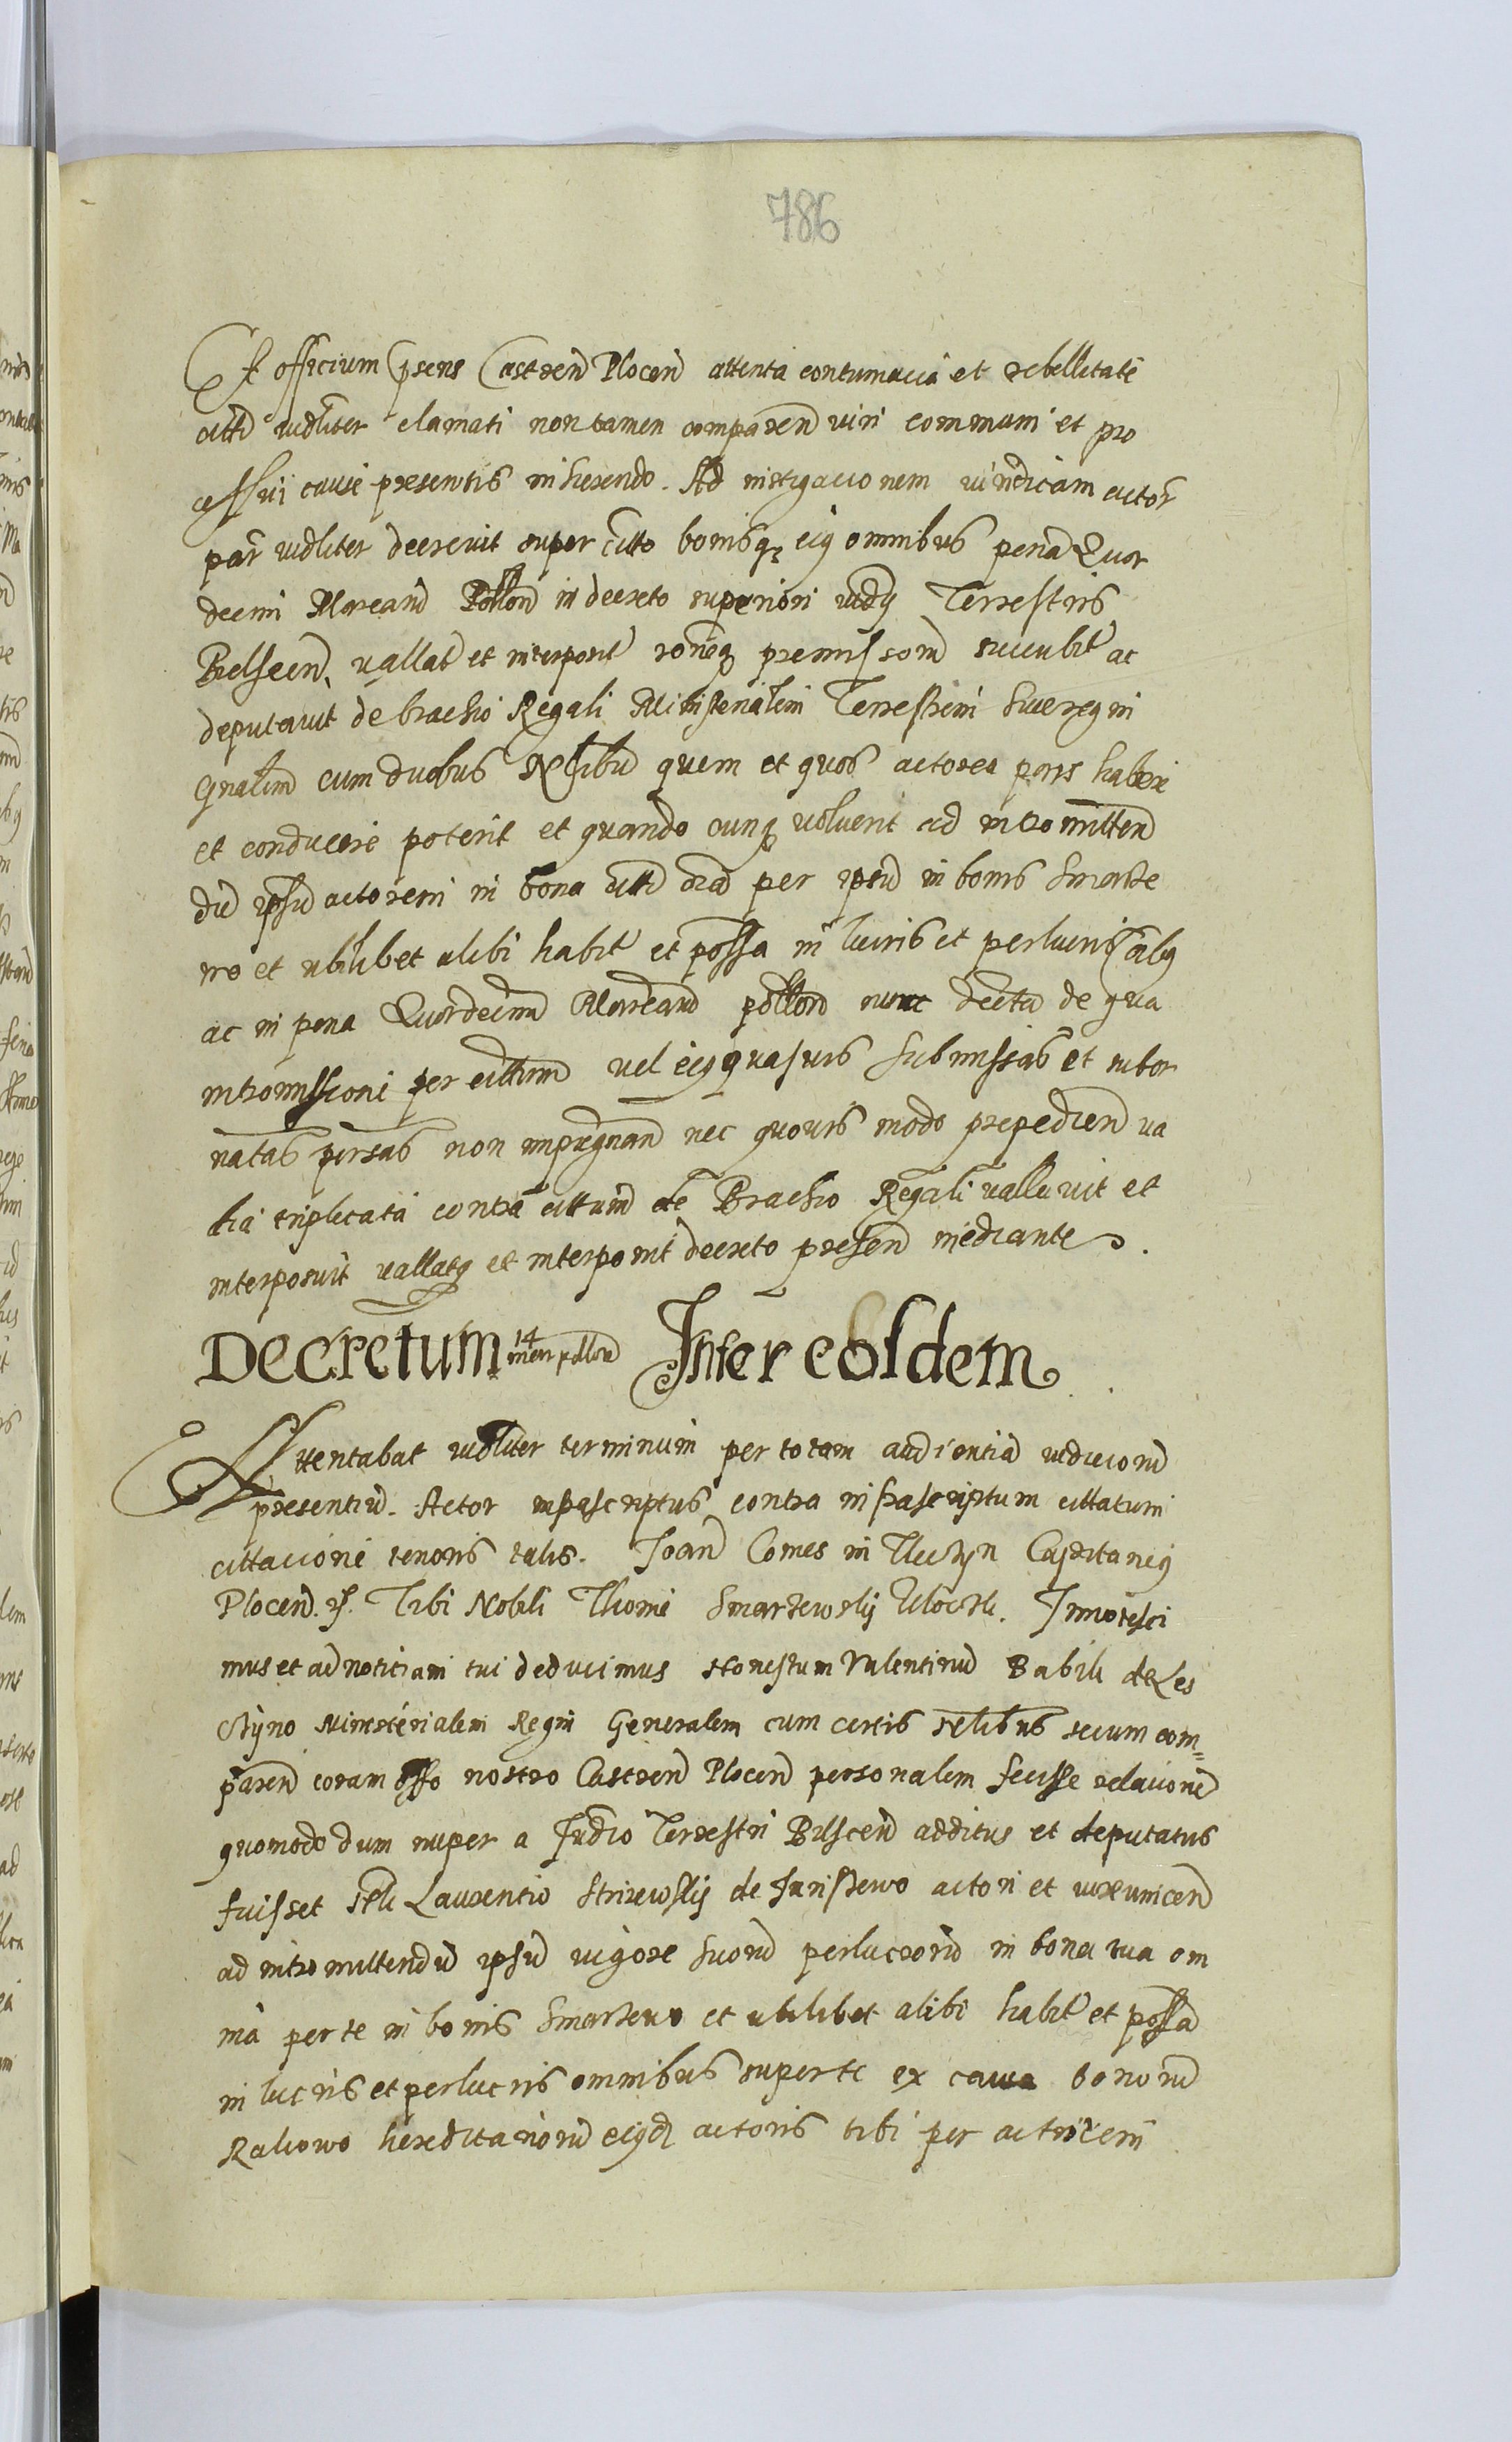 786
Et officium psens Castren Plocen attenta contumacia et rebellitate
citti iudliter clamati non tamen comparen viri commani et pro
cessui cause presentis inherendo. Ad instigacionem iuridicam actor
par iudliter decrevit super citto bonisq eig omnibus pena Quor
decim Marcaru Pollon in decreto superiori iudy Terrestris
Bielscen vallat et interposit roneq premissoru succubit ac
deputavit de brachio Regali Ministerialem Terrestrem sive regni
Gnalem cum duobus Nlibu quem et quos actorea pars habere
et conducere poterit et quando cunq voluerit ad intromitten
du ipsu actorem in bona citti oia per ipsu in bonis Smarze
wo et ubilibet alibi habit et possa in lucris et perlucris talig
ac in pena Quordecim Marcaru pollon nunc decta de qua
intromissione per cittum vel eig quasvis submissas et subor
natas persas non impugnan nec quovis modo prepedien va
dia triplicata contra cittum de Brachio Regali vallavit et
interposuit vallatq et interponit decreto presen mediante.
Decretum 14 mar pollon Inter eosdem
Attentabat iudliter terminum per totam audientia iudicioru
presentiu. Actor infrascriptus contra infrascriptum cittatum
cittacione tenoris talis. Joan Comes in Tlecyn Capitaneg
Plocen. Tibi Nobili Thome Smarzewsky Innotesci
mus et ad notitiam tui deducimus Honestum Valentinu Babik de Les
czyno Ministerialem Regni Generalem cum certis nelibus secum com=
paren coram offo nostro Castren Plocen personalem fecisse relacione
quomodo dum nuper a Judio Terrestri Bilscen additus et deputatus
fuisset Laurentio de actori et
ad intromittendu ipsu vigore suoru perlucroru in bona tua om
nia per te in bonis Smarzewo et ubilibet alibi habit et possa
in lucris et perlucris omnibus super te ex causa bonoru
Rakowo hereditarioru eigd actoris tibi per actricem